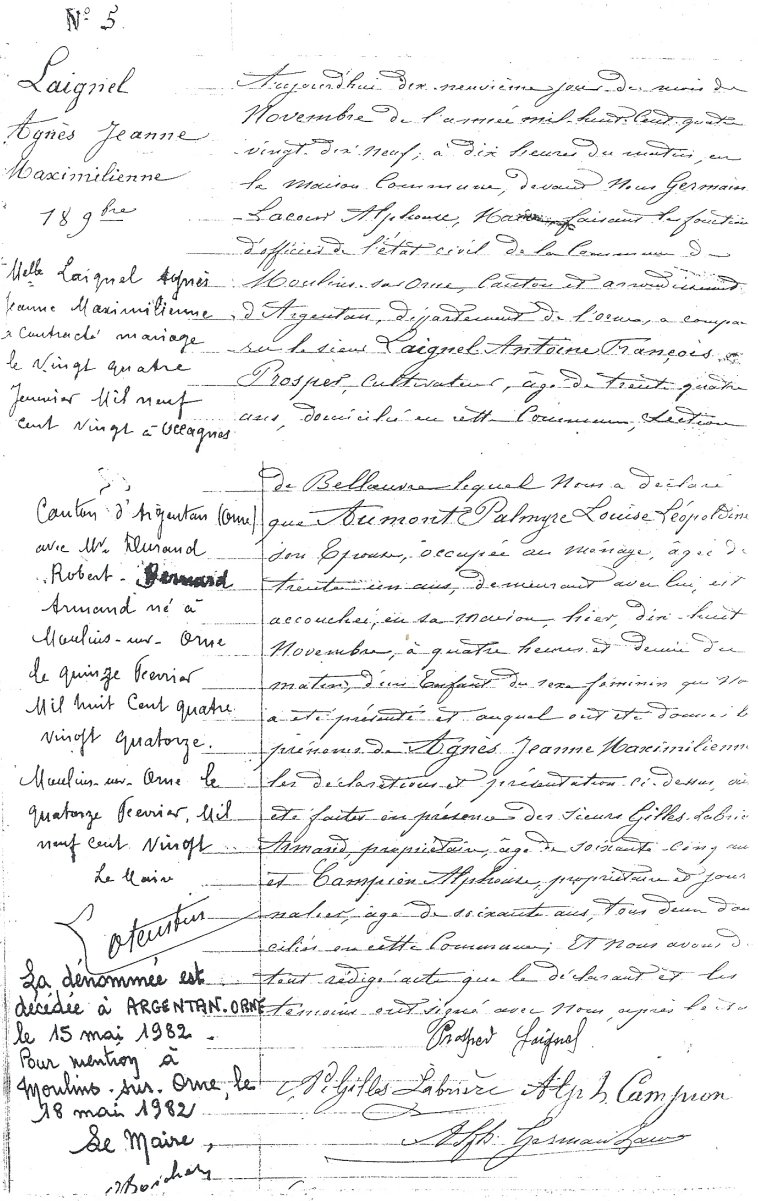 N° 5
Laignel
Agnès Jeanne
Maximilienne
18 9bre
Melle Laignel Agnès
Jeanne Maximilienne
a contracté mariage
le vingt quatre
Janvier Mil neuf
cent vingt à Occagnes
Canton d'Argentan (Orne)
avec Mr. Durand
Robert - Bernard
Armand né à
Moulins-sur-Orne
le quinze Février
Mil huit Cent quatre
vingt quatorze.
Moulins-sur-Orne le
quatorze Février, Mil
neuf cent vingt
Le Maire
La dénommée est
décédée à ARGENTAN-ORNE
le 15 mai 1982.
Pour mention à
Moulins-sur-Orne, le
18 mai 1982
Le Maire,
Aujourd'hui dix neuvième jour du mois de
Novembre de l'année mil-huit-Cent-quatre
vingt-dix neuf, à dix heures du matin, en
la maison Commune, devant Nous Germain
-Lacour Alphonse, Maire, faisant les fonction
d'officier de l'état civil de la Commune de
Moulins-sur-Orne, Canton et arrondissement
d'Argentan, département de l'orne, a compa
ru le sieur Laignel Antoine François
Prosper, Cultivateur, âgé de trente quatre
ans, domicilié en cette Commune, section
de Bellauvre lequel Nous a déclaré
que Aumont Palmyre Louise Léopoldine
son Epouse, occupée au ménage, agée de
trente un ans, demeurant avec lui, est
accouchée, en sa maison, hier, dix-huit
Novembre, à quatre heures et demie du
matin, d'un Enfant du sexe féminin qu
a été présenté et auquel ont été donnés l
prénoms de Agnès Jeanne Maximilienne
les déclarations et présentation ci-dessus,
été faites en présence des sieurs Gilles Labrie
Armand, propriétaire, âgé de soixante cinq an
et Campion Alphonse, propriétaire et jour
nalier, âgé de soixante ans, tous deux do
ciliés en cette Commune; Et Nous avons d
tout rédigé acte que le déclarant et les
témoins ont signé avec Nous, après lecture
Prosper Laignel
Ad Gilles Labrière Alph. Campion
Alph. Germain Lacour